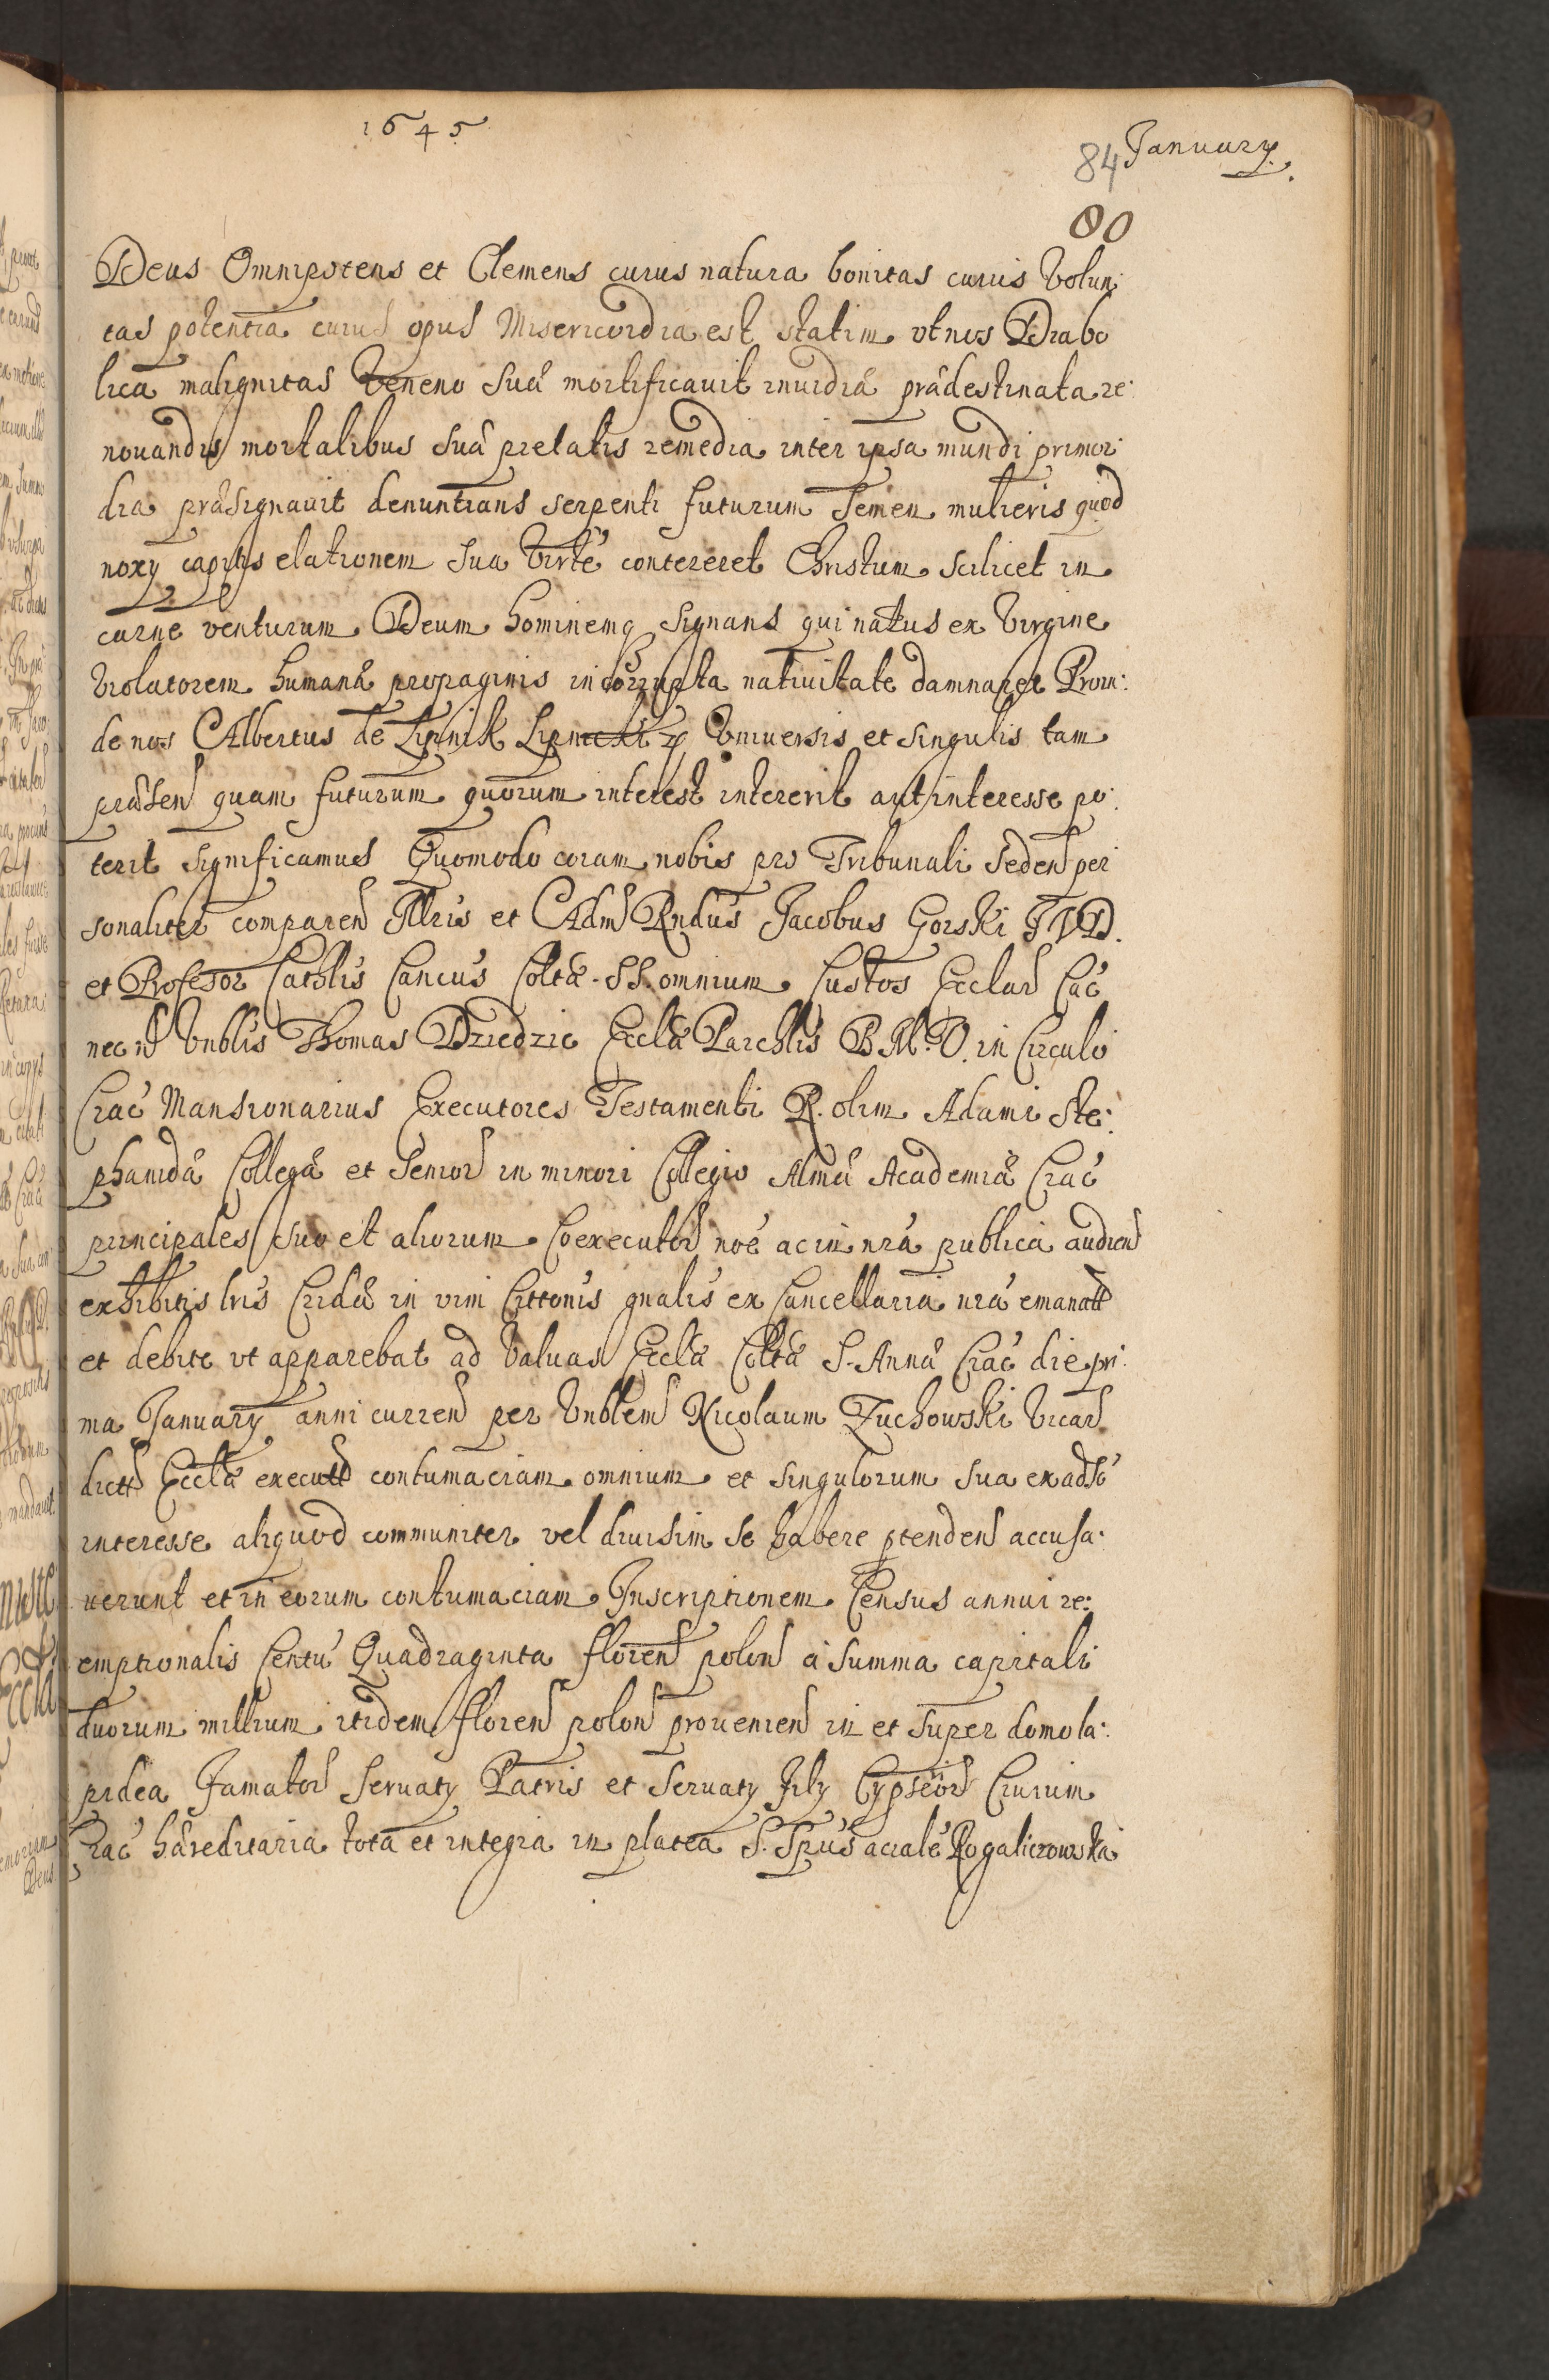 1645
84 Januarij.
80
Deus Omnipotens et Clemens cuius natura bonitas cuius Volun:
tas potentia cuius opus Misericordia est statim vt nos Diabo
lica malignitas Veneno Suâ mortificauit inuidiâ prâdestinata re:
nouandis mortalibus Suâ pietatis remedia inter ipsa mundi primor:
dia prâsignauit denuntians serpenti futurum Semen mulieris quod
noxij capitis elationem Sua Virtê contereret Christum scilicet in
carne venturum Deum hominemq signans qui natus ex Virgine
Violatorem humanâ propaginis incorrupta natiuitate damnaret Proin:
de nos Albertus de Lipnik Lipnicki Vniuersis et singulis tam
prâsen quam futurum quorum interest intererit aut interesse po:
terit significamus Quomodo coram nobis pro Tribunali Seden per
sonaliter comparen Illris et Adm Rndus Jacobus Gorski JVD.
et Profesor Cathlis Cancus Coltâ SS. omnium Custos Ecclar Cac
nec n Vnblis Thomas Dziedzic Ecclâ Parchlis B.M.V. in Circulo
Crac Mansionarius Executores Testamenti R. olim Adami Ste:
phanidâ Collegâ et Senior in minori Collegio Almâ Academiâ Crac
principales suo et aliorum Coexecutor noê ac in nrâ publica audien
exhibitis lris Cridâ in vim Cittonis gnalis ex Cancellaria nrâ emanatt
et debite vt apparebat ad Valuas Ecclâ Coltâ S. Annâ Crac die pri:
ma Januarij anni curren per Vnblem Nicolaum Zuchowski Vicar
dictt Ecclâ executt contumaciam omnium et singulorum sua ex adso
interesse aliquod communiter vel diuisim se habere ptenden accusa:
uerunt et in eorum contumaciam Inscriptionem Census annui re:
emptionalis Centu Quadraginta floren polon à Summa capitali
duorum millium itidem floren polon prouenien in et super domo la:
pidea Famator Seruatij Patris et Seruatij Filij Cypseor Ciuium
Crac hâreditaria tota et integra in platea S. Spus aciale Rogaliczowska